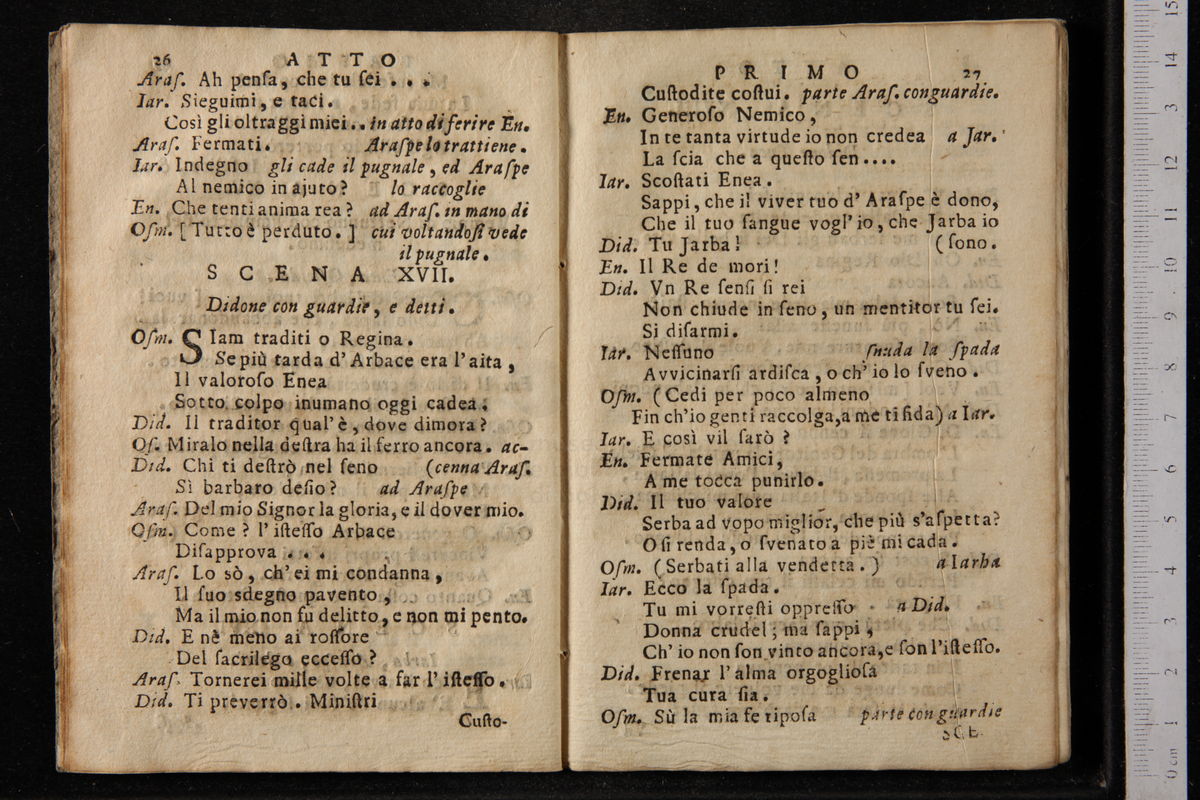 26 ATTO
Araſ. Ah penſa, che tu ſei . . .
Iar. Sieguimi, e taci.
Così gli oltraggi miei . . in atto di ferire En.
Araſ. Fermati. Araſpe lo trattiene.
Iar. Indegno gli cade il pugnale, ed Araſpe
Al nemico in ajuto? lo raccoglie
En. Che tenti anima rea? ad Araſ. in mano di
Oſm. [Tutto è perduto.] cui voltandoſi vede
il pugnale.
SCENA XVII.
Didone con guardie, e detti.
Oſm. SIam traditi o Regina.
Se più tarda d' Arbace era l' aita,
Il valoroſo Enea
Sotto colpo inumano oggi cadea.
Did. Il traditor qual' è, dove dimora?
Oſ. Miralo nella deſtra ha il ferro ancora. ac-
Did. Chi ti deſtrò nel ſeno (cenna Araſ.
Sì barbaro deſio? ad Araſpe
Araſ. Del mio Signor la gloria, e il dover mio.
Oſm. Come? l' iſteſſo Arbace
Diſapprova . . .
Araſ. Lo sò, ch' ei mi condanna,
Il ſuo sdegno pavento,
Ma il mio non fu delitto, e non mi pento.
Did. E nè meno ai roſſore
Del ſacrilego ecceſſo?
Araſ. Tornerei mille volte a far l' iſteſſo.
Did. Ti preverrò. Miniſtri
Cuſto-
PRIMO 27
Cuſtodite coſtui. parte Araſ. con guardie.
En. Generoſo Nemico,
In te tanta virtude io non credea a Jar.
La ſcia che a queſto ſen . . . .
Iar. Scoſtati Enea.
Sappi, che il viver tuo d' Araſpe è dono,
Che il tuo ſangue vogl' io, che Jarba io
Did. Tu Jarba! (ſono.
En. Il Re de mori!
Did. Vn Re ſenſi ſi rei
Non chiude in ſeno, un mentitor tu ſei.
Si diſarmi.
Iar. Neſſuno ſnuda la ſpada
Avvicinarſi ardiſca, o ch' io lo ſveno.
Oſm. (Cedi per poco almeno
Fin ch' io genti raccolga, a me ti fida) a Iar.
Iar. E così vil ſarò?
En. Fermate Amici,
A me tocca punirlo.
Did. Il tuo valore
Serba ad vopo miglior, che più s'aſpetta?
O ſi renda, o ſvenato a piè mi cada.
Oſm. (Serbati alla vendetta.) a Iarba
Iar. Ecco la ſpada.
Tu mi vorreſti oppreſſo a Did.
Donna crudel; ma ſappi,
Ch' io non ſon vinto ancora, e ſon l'iſteſſo.
Did. Frenar l' alma orgoglioſa
Tua cura ſia.
Oſm. Sù la mia fe ripoſa parte con guardie
SCE-
0 cm 1 2 3 4 5 6 7 8 9 10 11 12 13 14 15